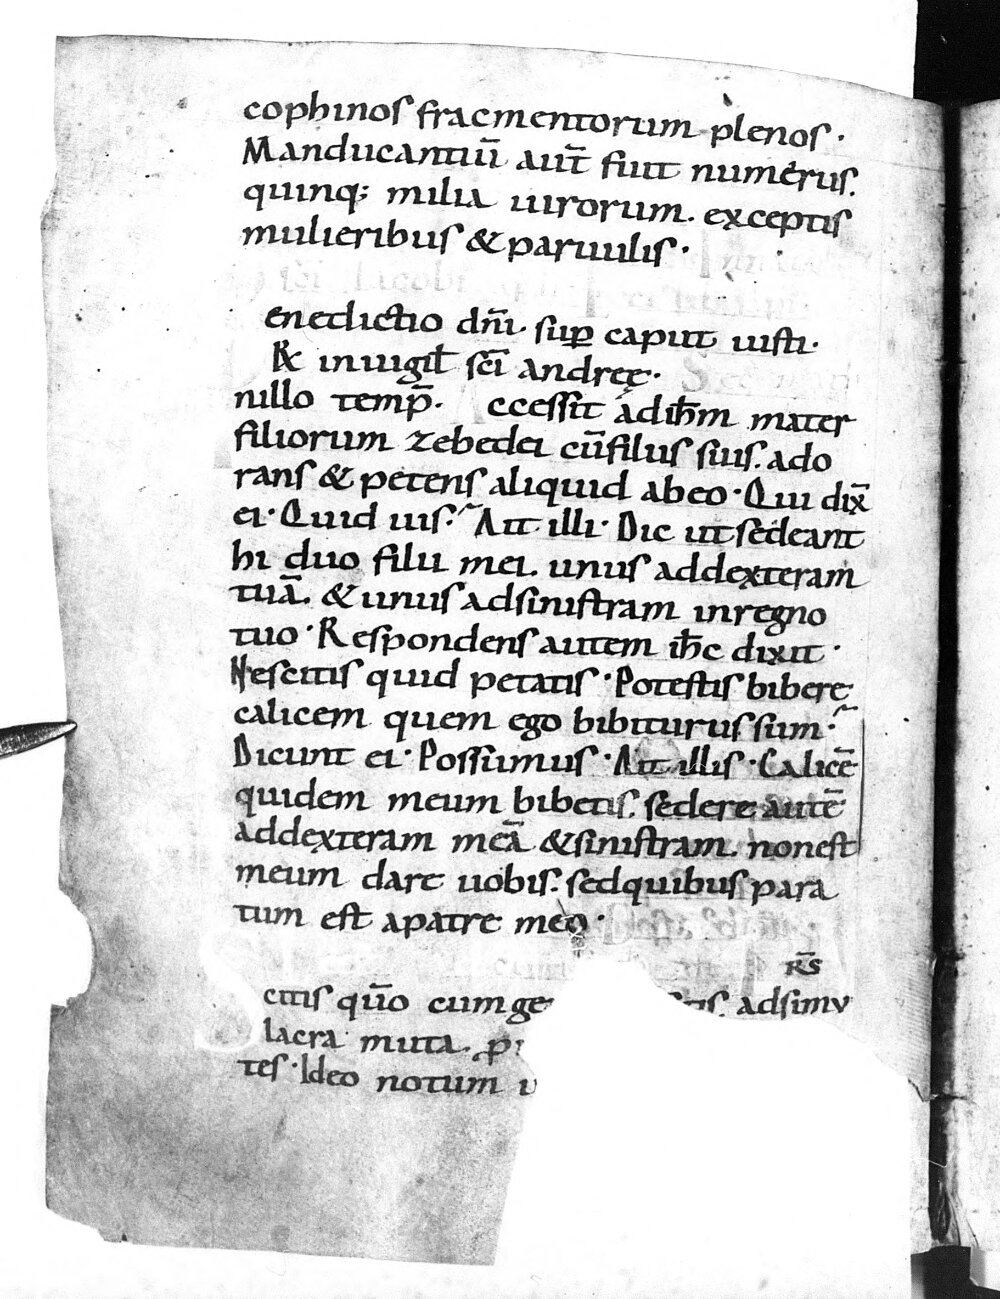 cophinos fracmentorum plenos ·
Manducantiū aut̄ fuit numerus.
quinq; milia uirorum. exceptis
mulieribus & paruulis ·
enedictio dn̄i sup̄ caput iusti ·
R̸ in uigiƚ sc̄i andreę ·
n illo temp̄. ccessit ad ih̄m mater
filiorum zebedei cū filiis suis. ado
rans & petens aliquid ab eo · Qui dix̄
ei · Quid uis. Ait illi · Dic ut sedeant
hi duo filii mei. unus ad dexteram
tuā. & unus ad sinistram in regno
tuo · Respondens autem ih̄c dixit ·
Nescitis quid petatis · Potestis bibere
calicem quem ego bibiturus sum.
Dicunt ei · Possumus · Ait illis · Calicē
quidem meum bibetis. sedere autē
ad dexteram meā & sinistram. non est
meum dare uobis. sed quibus para
tum est a patre meo ·
R̄S
citis qūo cum ge ad simu
lacra muta.
tes · Ideo notum